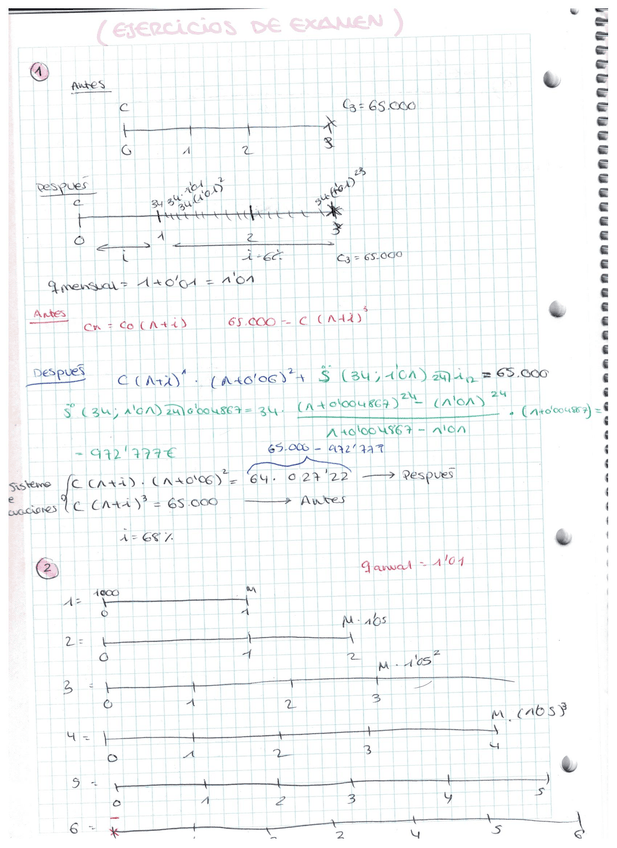 (EJERCICIOS DE EXAMEN)
1
Antes
C C3 = 65.000
0 1 2 3
Después
C 34 34·1'01 34·(1'01)^2 34·(1'01)^23
0 1 2 3
i i=6% C3 = 65.000
q mensual = 1+0'01 = 1'01
Antes
Cn = Co (1+i) 65.000 = C (1+i)^3
Después C (1+i)^1 · (1+0'06)^2 + S̈ (34; 1'01) 24⌉ i12 = 65.000
S̈ (34; 1'01) 24⌉0'004867 = 34 · (1+0'004867)^24 - (1'01)^24 / 1+0'004867 - 1'01 · (1+0'004867) =
= 972'777€ 65.000 - 972'777
Sistema C (1+i) · (1+0'06)^2 = 64.027'22 → Después
C (1+i)^3 = 65.000 → Antes
i = 6'8%
2 q anual = 1'01
1= 1000 M
0 1
2= M·1'05
0 1 2
3 = M·1'05^2
0 1 2 3
4 = M·(1'05)^3
0 1 2 3 4
5 =
0 1 2 3 4 5
6 =
2 4 5 6